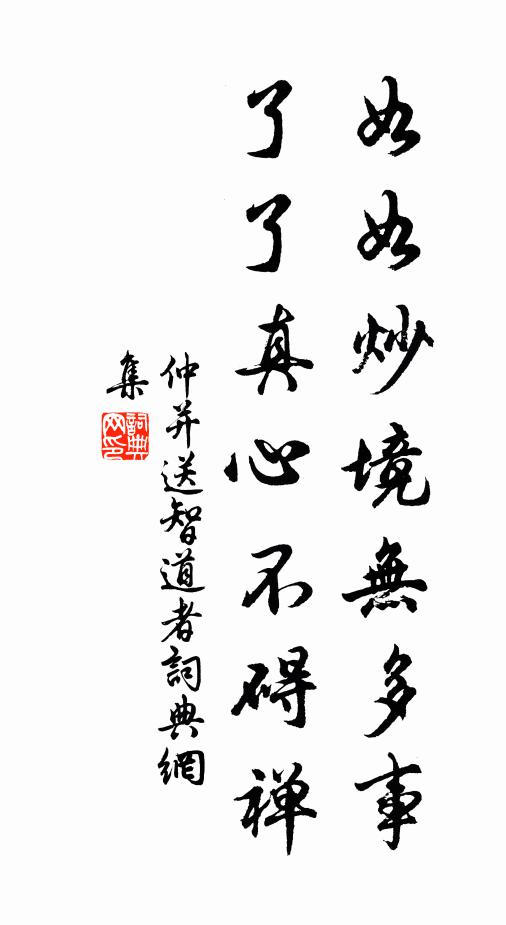 如如炒境無多事
了了真心不碍禅
仲并送智道者詞典網
集
詞典网印